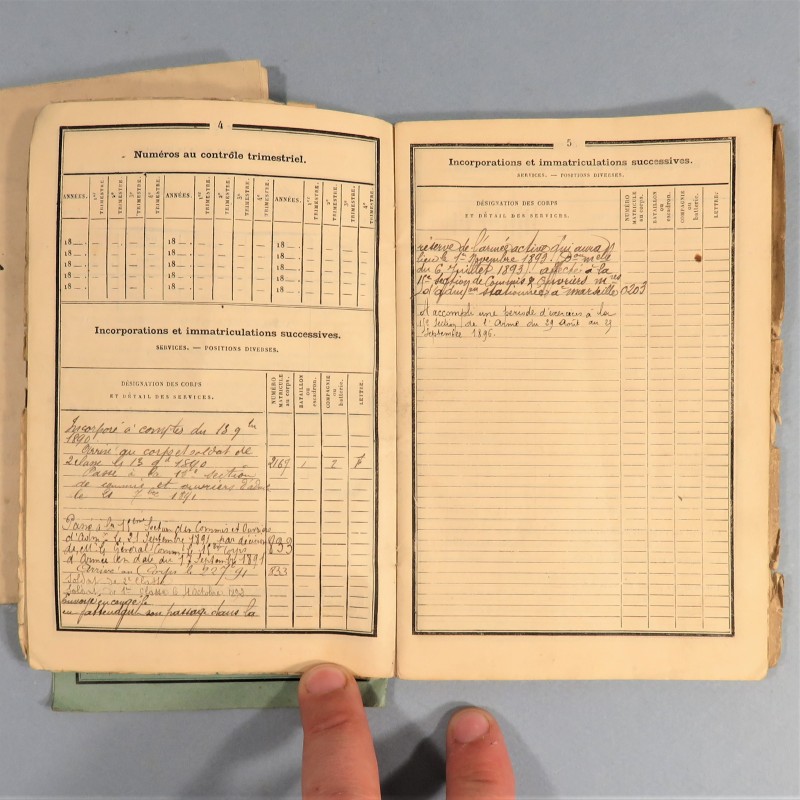 4
Numéros au contrôle trimestriel.
ANNÉES. 1er TRIMESTRE. 2e TRIMESTRE. 3e TRIMESTRE. 4e TRIMESTRE. ANNÉES. 1er TRIMESTRE. 2e TRIMESTRE. 3e TRIMESTRE. 4e TRIMESTRE. ANNÉES. 1er TRIMESTRE. 2e TRIMESTRE. 3e TRIMESTRE. 4e TRIMESTRE.
18 18 18
18 18 18
18 18 18
18 18 18
18 18 18
Incorporations et immatriculations successives.
SERVICES. — POSITIONS DIVERSES.
DÉSIGNATION DES CORPS
ET DÉTAIL DES SERVICES.
NUMÉRO MATRICULE au corps.
BATAILLON ou escadron.
COMPAGNIE ou batterie.
LETTRE.
Incorporé à compter du 13 9bre
1890
Arrivé au corps et soldat de
2e classe le 13 9bre 1890 2167 1 2
Passé à la section
de commis et ouvriers
le 21 7bre 1891
Passé à la 15eme Section des Commis et Ouvriers
d'Adm le 21 Septembre 1891 par décision
de Mr le Général Commt le 15e Corps 833
d'Armée en date du 17 Septembre 1891
Arrivé au Corps le 22 7bre 91 833
Soldat de 2e Classe
Soldat de 1re Classe le Octobre 1892
Envoyé en congé le
en attendant son passage dans la
5
Incorporations et immatriculations successives.
SERVICES. — POSITIONS DIVERSES.
DÉSIGNATION DES CORPS
ET DÉTAIL DES SERVICES.
NUMÉRO MATRICULE au corps.
BATAILLON ou escadron.
COMPAGNIE ou batterie.
LETTRE.
réserve de l'armée active qui aura
lieu le 1er Novembre 1893
du 6 Juillet 1893) affecté à la
15e Section de Commis & Ouvriers mres
d'admon stationnée à Marseille 0203
A accompli une période d'exercices à la
15e Section de l'Arme du 29 Août au 25
Septembre 1896.